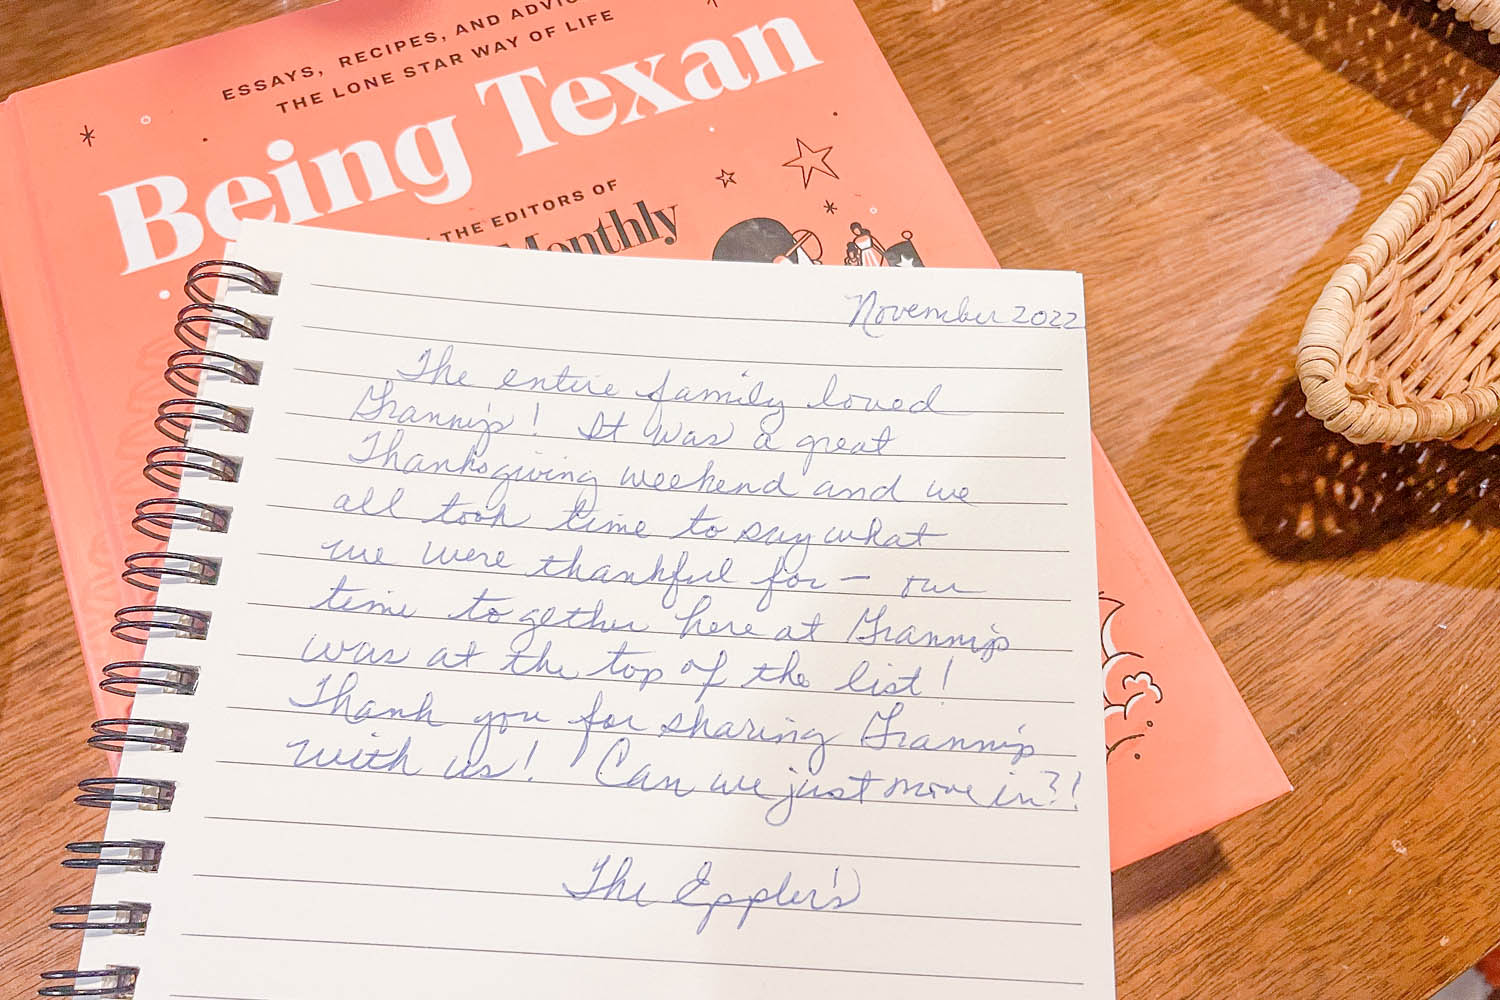 ESSAYS, RECIPES, AND
THE LONE STAR WAY OF LIFE
Being Texan
THE EDITORS OF
Monthly
November 2022
The entire family loved
Grannip's! It was a great
Thanksgiving weekend and we
all took time to say what
we were thankful for – our
time together here at Grannip's
was at the top of the list!
Thank you for sharing Grannip's
with us! Can we just move in?!
The Eppler's